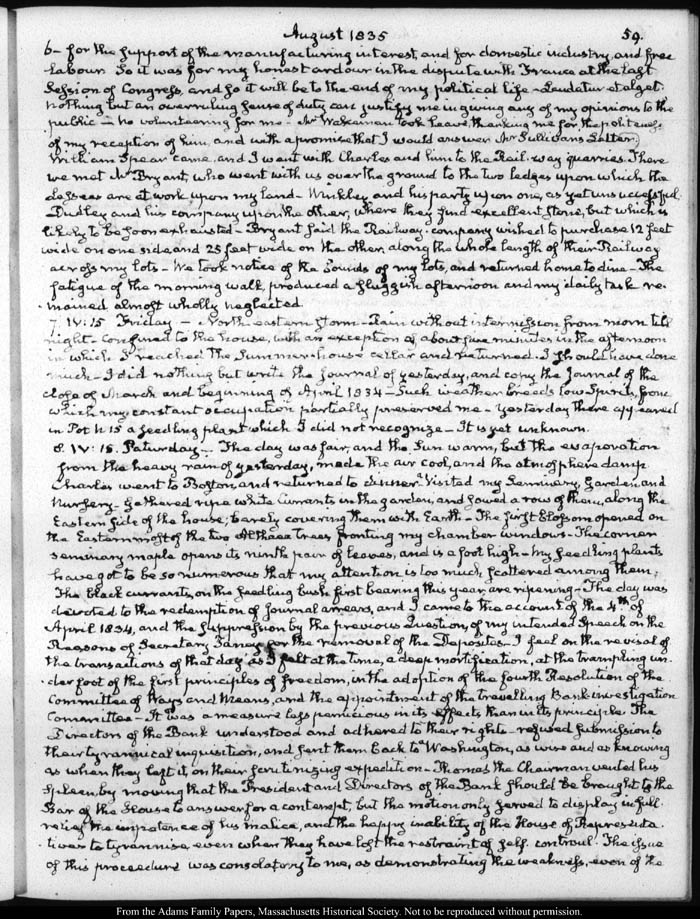 August 1835
59.
6– for the support of the manufacturing interest, and for domestic industry, and free
labour. So it was for my honest ardour in the dispute with France at the last
Session of Congress, and so it will be to the end of my political life – Laudatur et alget.
nothing but an overruling sense of duty can justify me in giving any of my opinions to the
public – no volunteering for me – Mr took leave, thanking me for the politeness
of my reception of him, and with a promise that I would answer Mr Sullivans Letter.
William Spear came, and I went with Charles and him to the Rail-way quarries. There
we met Mr Bryant, who went with us over the ground to the two ledges upon which the
lessees are at work upon my land – Winkley and his party upon one, as yet unsuccessful
Dudley and his company upon the other, where they find excellent stone, but which is
likely to be soon exhausted – Bryant said the Railway-company wished to purchase 12 feet
wide on one side and 25 feet wide on the other, along the whole length of their Railway
across my lots – We took notice of the bounds of my lots, and returned home to dine – The
fatigue of the morning walk, produced a sluggish afternoon and my daily task re-
-mained almost wholly neglected.
7. IV:15 Friday – North-eastern storm – Rain without intermission from morn till
night – Confined to the house, with an exception of about five minutes in the afternoon
in which I reached the Summer-house cellar and returned. I should have done
much – I did nothing but write the Journal of yesterday, and copy the Journal of the
close of March and beginning of April 1834 – Such weather breeds low Spirits, from
which my constant occupation partially preserved me – Yesterday there appeared
in Pot N. 15 a seedling plant which I did not recognize – It is yet unknown.
8. IV:15. Saturday – The day was fair, and the Sun warm, but the evaporation
from the heavy rain of yesterday, made the air cool, and the atmosphere damp
Charles went to Boston, and returned to dinner. Visited my Seminary, Garden, and
Nursery – Gathered ripe white Currants in the garden, and sowed a row of them, along the
Eastern side of the house; barely covering them with Earth – The first blossom opened on
the Easternmost of the two Althaea trees fronting my chamber windows – The corner
seminary maple opens its ninth pair of leaves, and is a foot high – My seedling plants
have got to be so numerous that my attention is too much scattered among them.
The black currants, on the seedling bush first bearing this year, are ripening – The day was
devoted to the redemption of Journal arrears, and I came to the account of the 4th of
April 1834, and the suppression by the previous Question, of my intended Speech on the
Reasons of Secretary Taney for the removal of the Deposites – I feel on the revisal of
the transactions of that day, as I felt at the time, a deep mortification, at the trampling un-
-der foot of the first principles of freedom, in the adoption of the fourth Resolution of the
Committee of Ways and Means, and the appointment of the travelling Bank-investigation
Committee – It was a measure less pernicious in its effects than in its principle. The
Directors of the Bank understood and adhered to their rights – refused submission to
their tyrannical inquisition, and sent them back to Washington, as wise and as knowing
as when they left it, on their scrutinizing expedition – Thomas the Chairman vented his
spleen, by moving that the President and Directors of the Bank should be brought to the
Bar of the House to answer for a contempt, but the motion only served to display in full
relief the impotence of his malice, and the happy inability of the House of Representa-
-tives to tyrannise, even when they have lost the restraint of self-controul. The issue
of this procedure was consolatory to me, as demonstrating the weakness, even of the
From the Adams Family Papers, Massachusetts Historical Society. Not to be reproduced without permission.